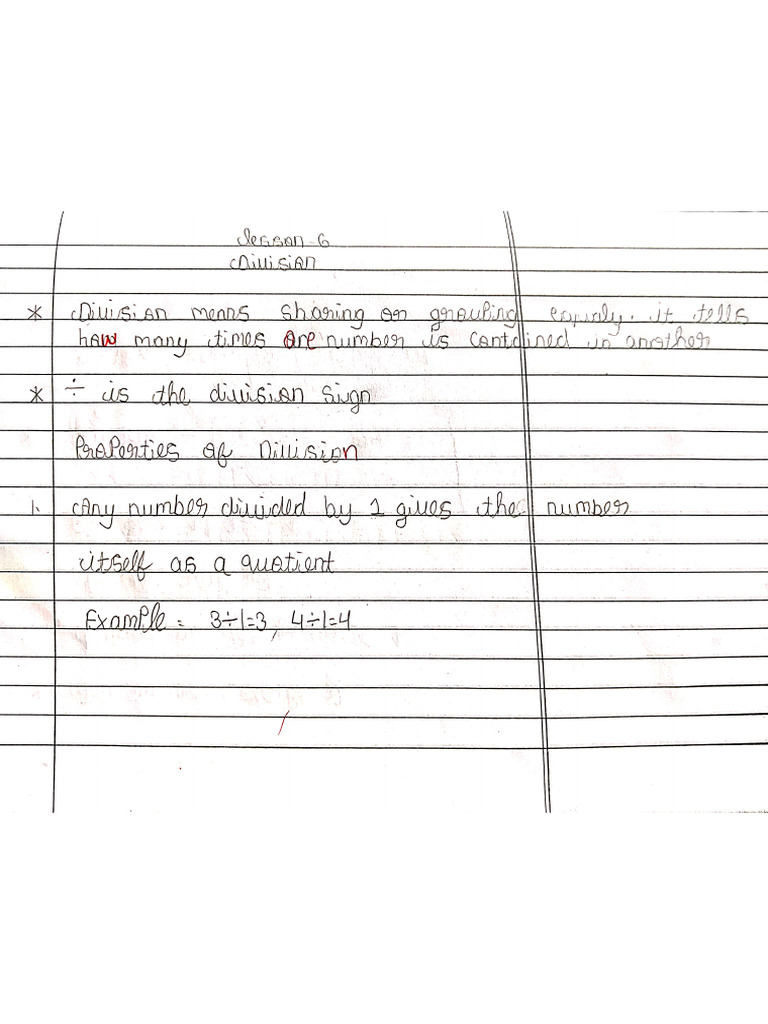 Lesson-6
Division
* Division means sharing or grouping equaly. it tells
how many times one number is contained in another
* ÷ is the division sign
Properties of Division
1. Any number divided by 1 gives the number
itself as a quotient
Example = 3÷1=3, 4÷1=4